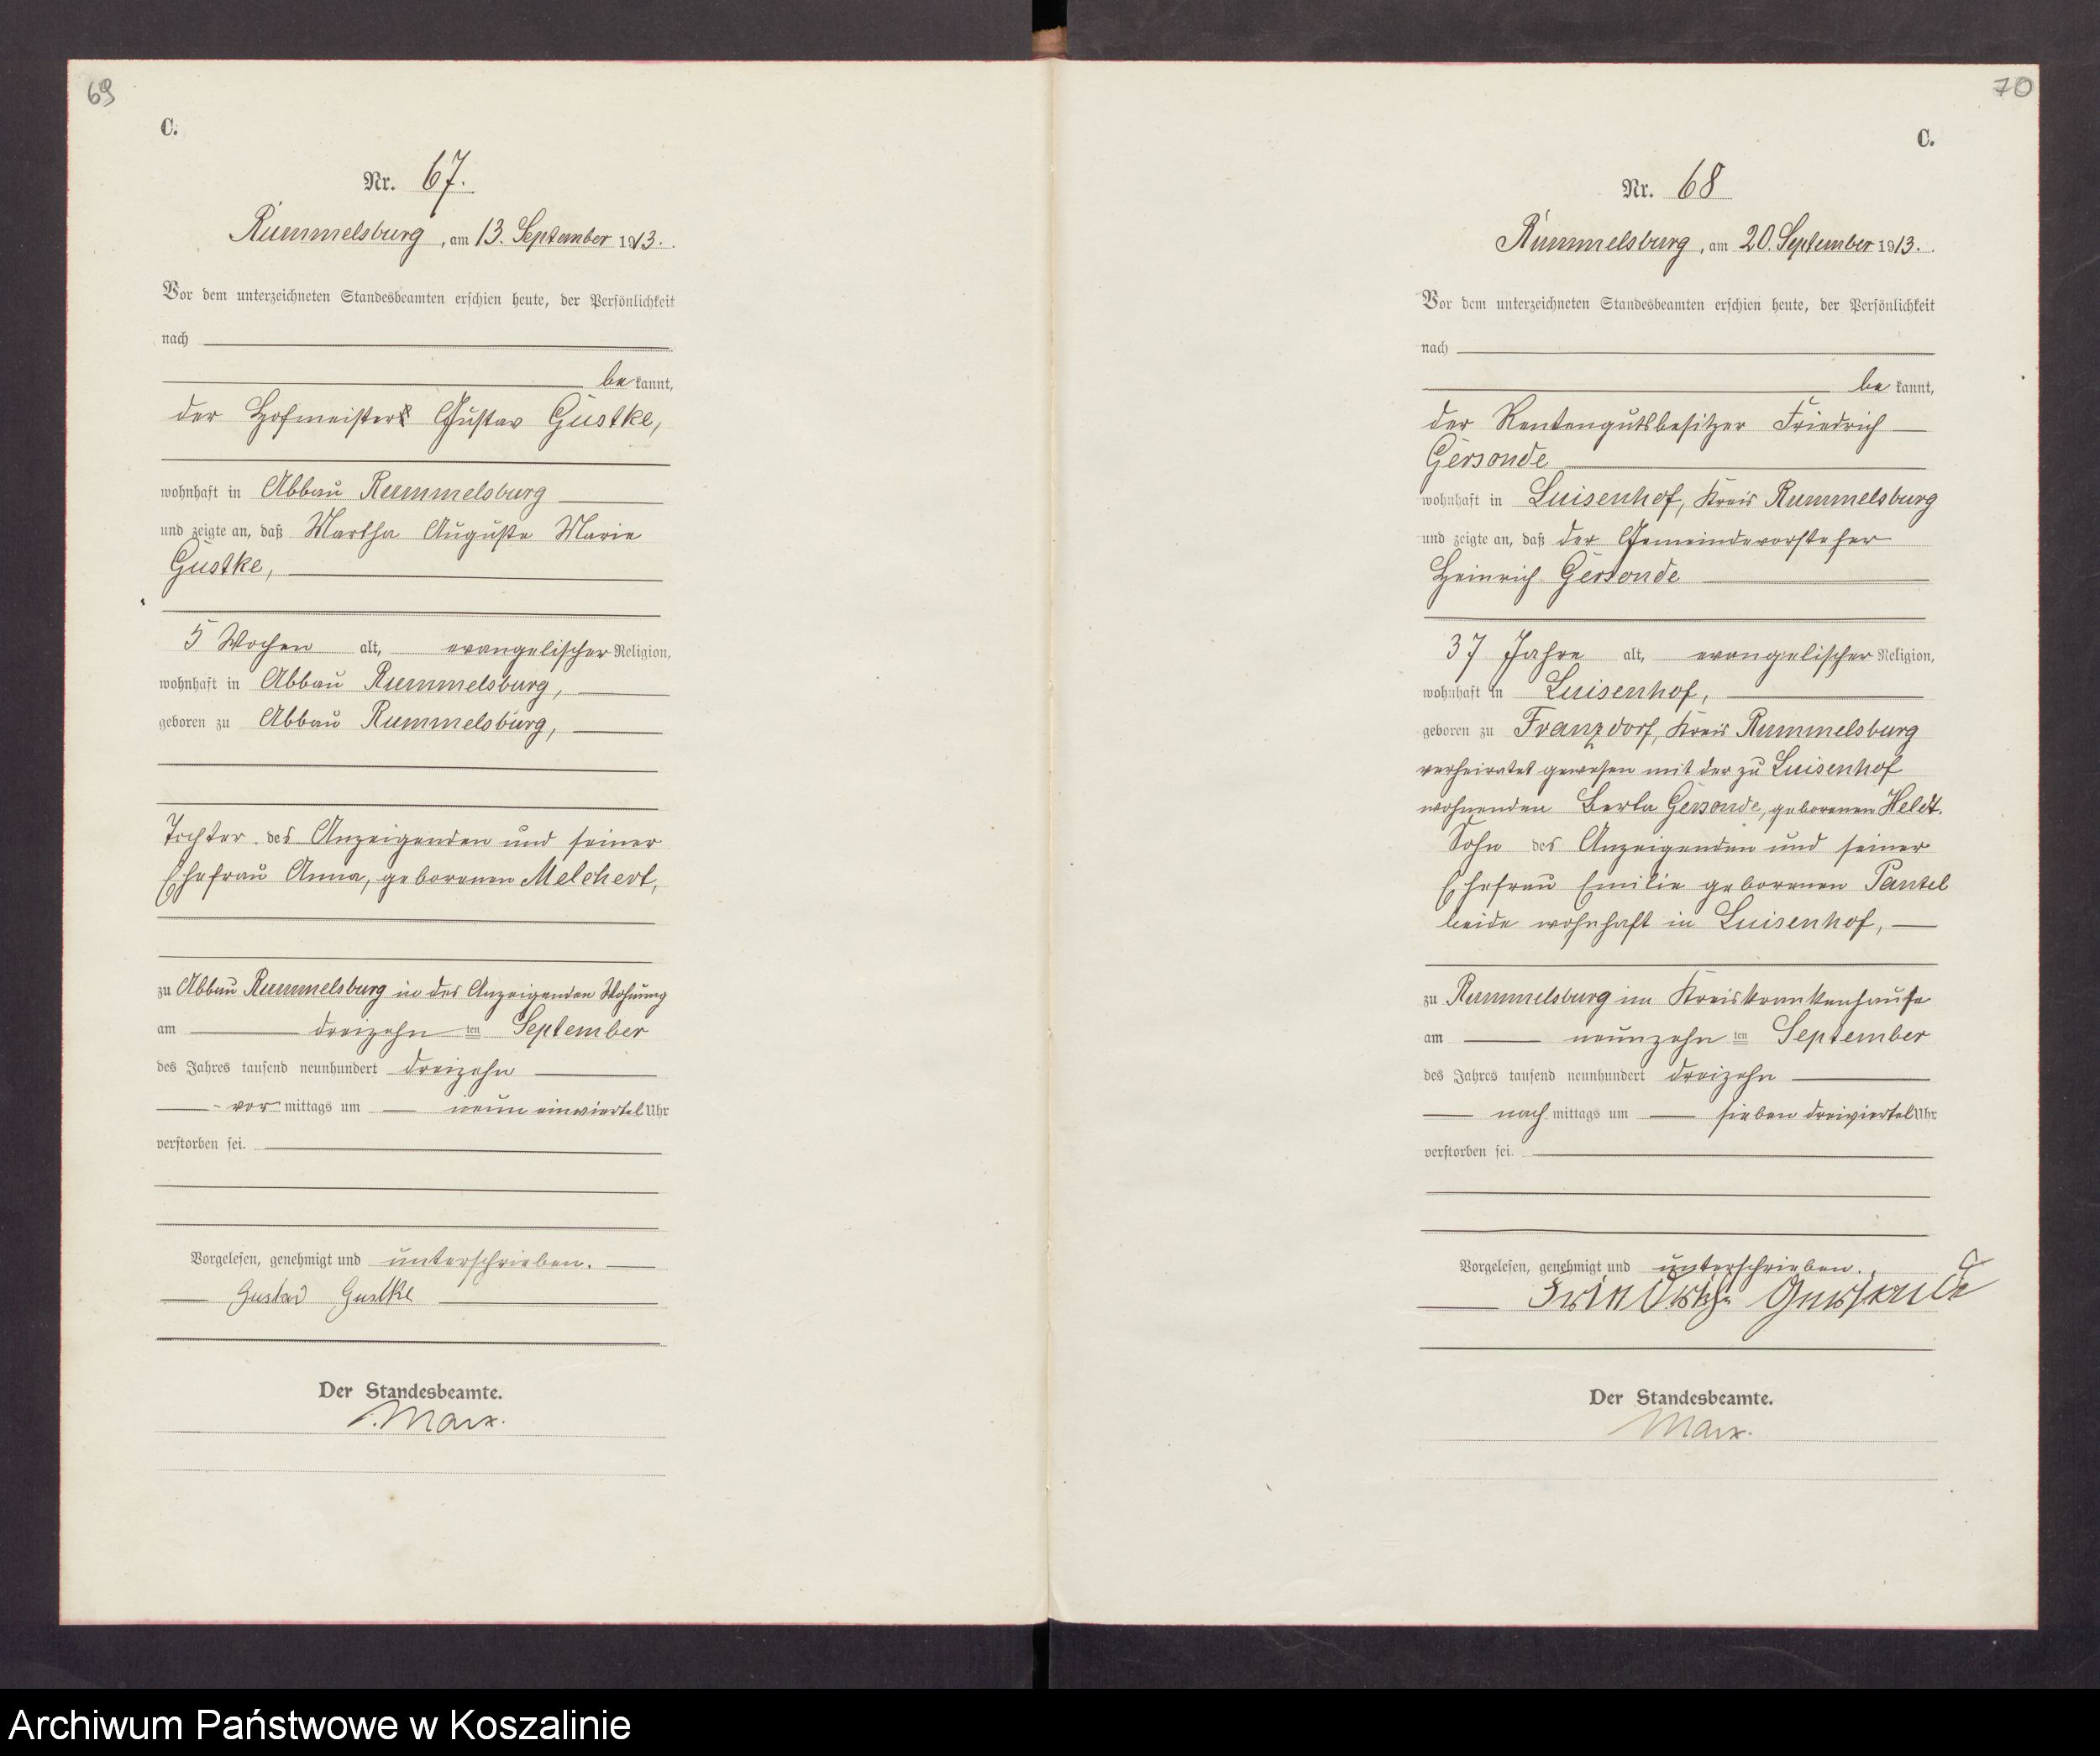 69
C.
Nr. 67.
Rummelsburg, am 13. September 1913.
Vor dem unterzeichneten Standesbeamten erschien heute, der Persönlichkeit
nach
bekannt,
der Hofmeister Gustav Gustke,
wohnhaft in Abbau Rummelsburg
und zeigte an, daß Martha Auguste Marie
Gustke,
5 Wochen alt, evangelischer Religion,
wohnhaft in Abbau Rummelsburg,
geboren zu Abbau Rummelsburg,
Tochter des Anzeigenden und seiner
Ehefrau Anna, geborenen Melchert,
zu Abbau Rummelsburg in des Anzeigenden Wohnung
am dreizehn ten September
des Jahres tausend neunhundert dreizehn
vor mittags um neun einviertel Uhr
verstorben sei.
Vorgelesen, genehmigt und unterschrieben.
Gustav Gustke
Der Standesbeamte.
Marx.
70
C.
Nr. 68
Rummelsburg, am 20. September 1913.
Vor dem unterzeichneten Standesbeamten erschien heute, der Persönlichkeit
nach
bekannt,
der Rentengutsbesitzer Friedrich
Gersonde
wohnhaft in Luisenhof, Kreis Rummelsburg
und zeigte an, daß der Gemeindevorsteher
Heinrich Gersonde
37 Jahre alt, evangelischer Religion,
wohnhaft in Luisenhof,
geboren zu Franzdorf, Kreis Rummelsburg
verheiratet gewesen mit der zu Luisenhof
wohnenden Berta Gersonde, geborenen Heldt.
Sohn des Anzeigenden und seiner
Ehefrau Emilie geborenen Pantel
beide wohnhaft in Luisenhof,
zu Rummelsburg im Kreiskrankenhause
am neunzehn ten September
des Jahres tausend neunhundert dreizehn
nach mittags um sieben dreiviertel Uhr
verstorben sei.
Vorgelesen, genehmigt und unterschrieben.
Der Standesbeamte.
Marx.
Archiwum Państwowe w Koszalinie